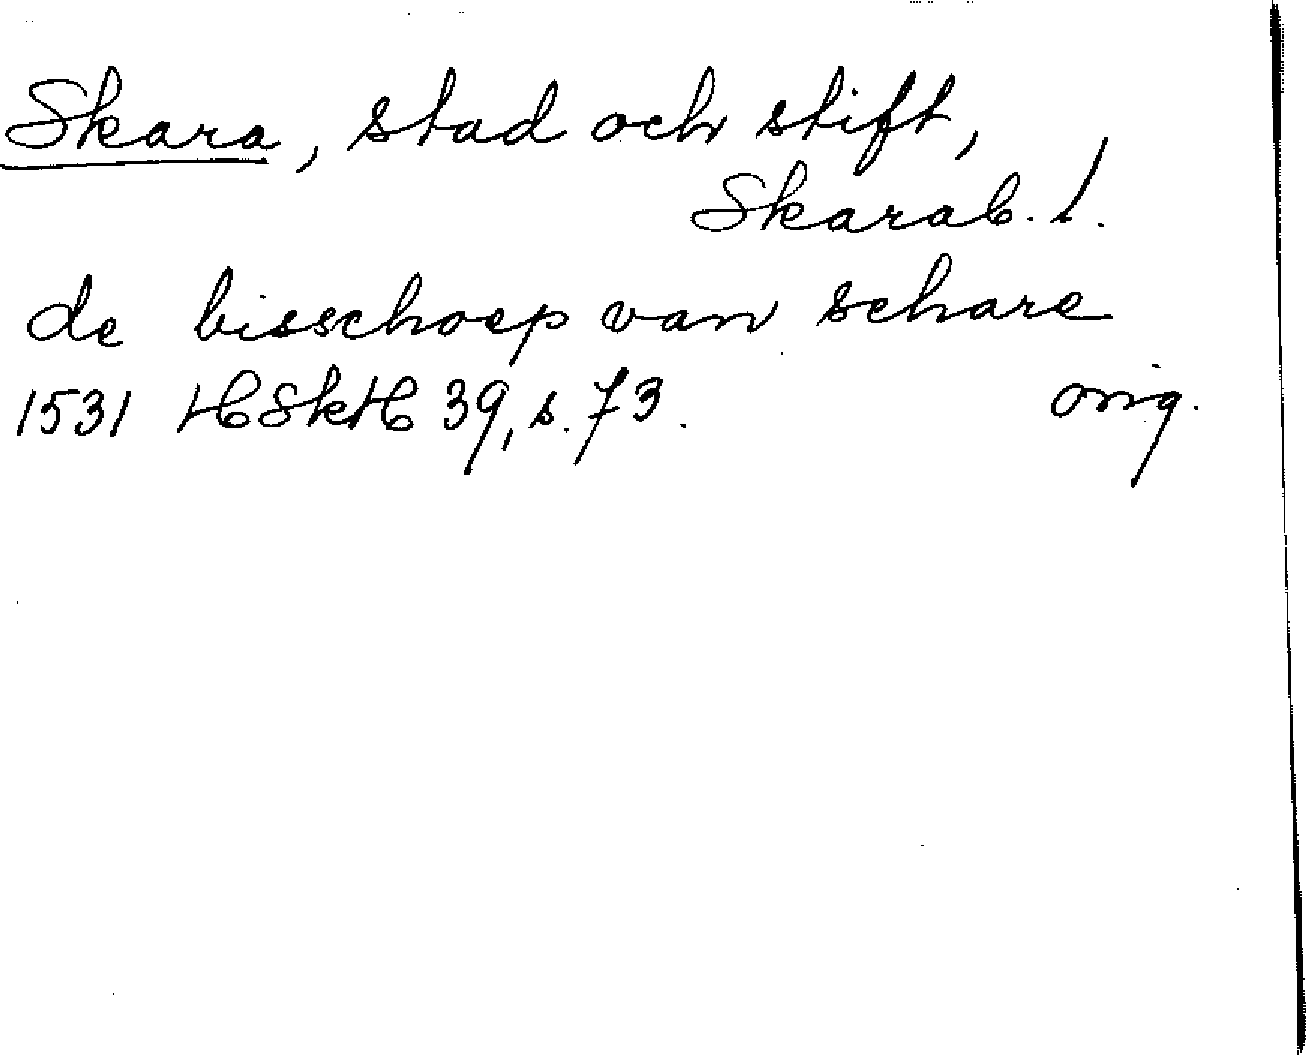 Skara, stad och stift,
Skarab. l.
de bisschoep van schare
1531 HSkH 39, s. 73. orig.